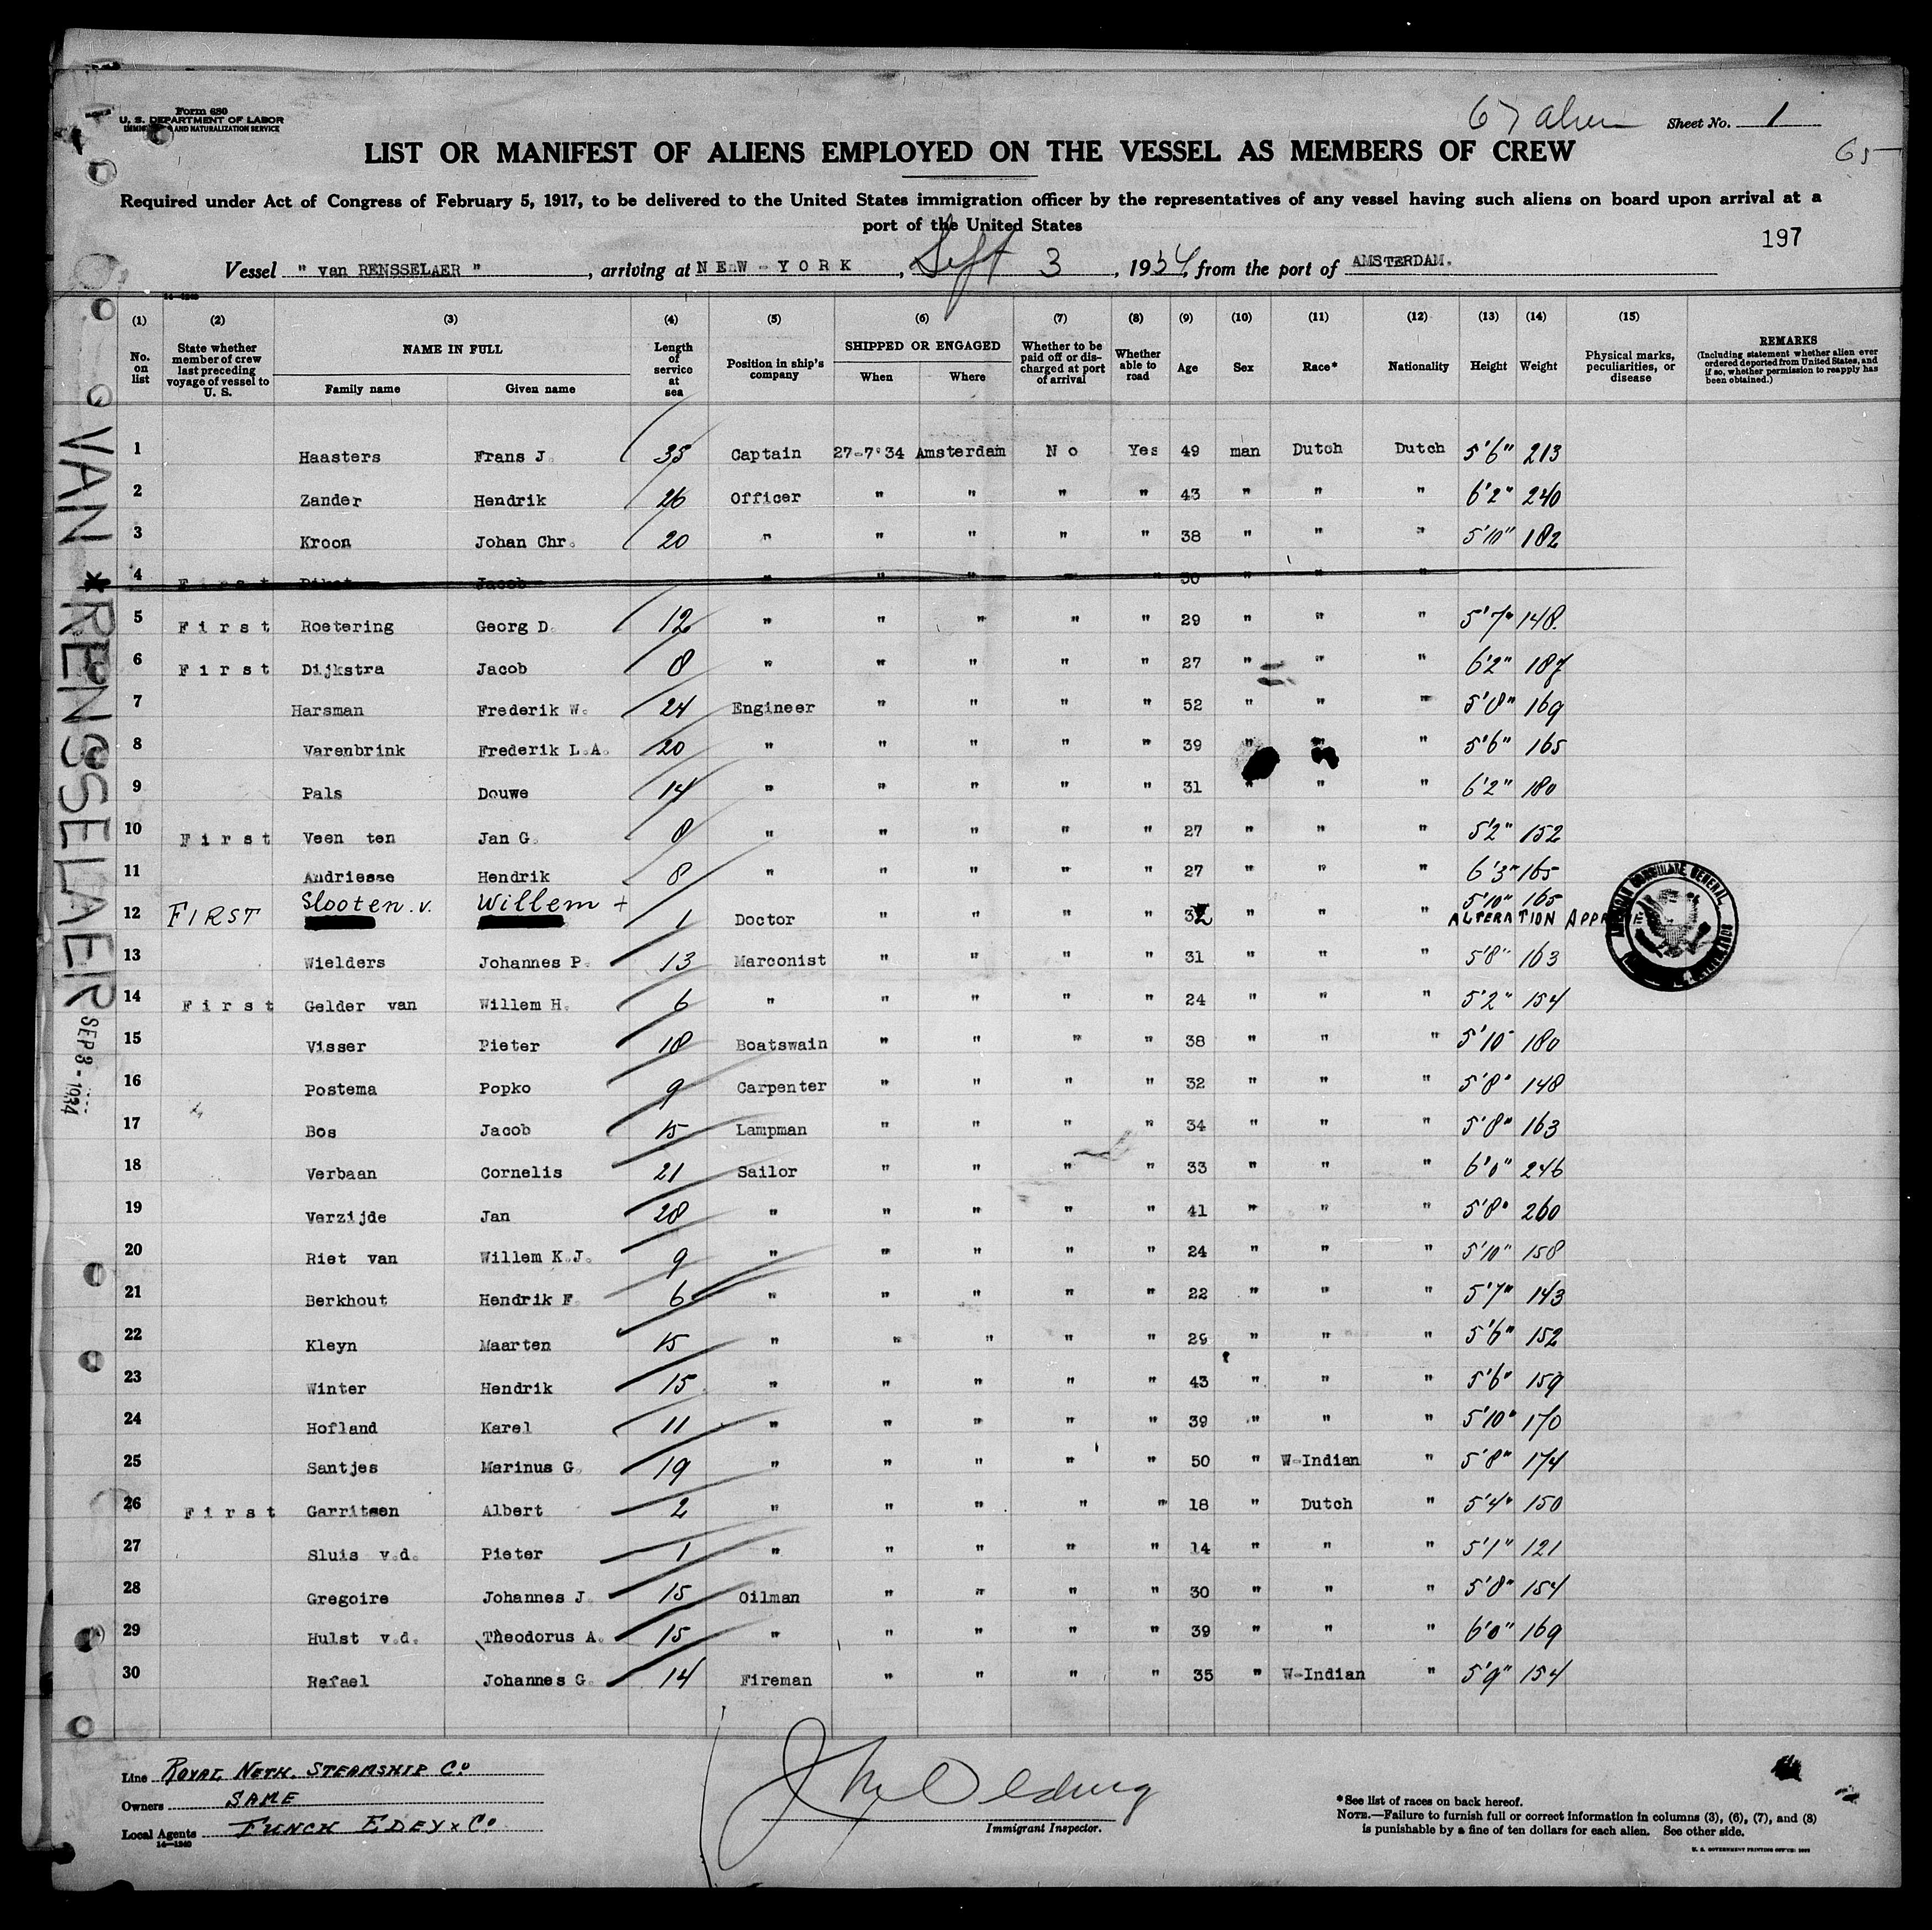 Form 680
U. S. DEPARTMENT OF LABOR
IMMIGRATION AND NATURALIZATION SERVICE
67 alien
Sheet No. 1
65
LIST OR MANIFEST OF ALIENS EMPLOYED ON THE VESSEL AS MEMBERS OF CREW
Required under Act of Congress of February 5, 1917, to be delivered to the United States immigration officer by the representatives of any vessel having such aliens on board upon arrival at a
port of the United States
197
Vessel " van RENSSELAER ", arriving at NEW-YORK, Sept 3, 1934, from the port of AMSTERDAM.
14-1240
(1) (2) (3) (4) (5) (6) (7) (8) (9) (10) (11) (12) (13) (14) (15)
No. on list
State whether member of crew last preceding voyage of vessel to U. S.
NAME IN FULL
Family name Given name
Length of service at sea
Position in ship's company
SHIPPED OR ENGAGED
When Where
Whether to be paid off or discharged at port of arrival
Whether able to read
Age Sex Race* Nationality Height Weight
Physical marks, peculiarities, or disease
REMARKS
(Including statement whether alien ever ordered deported from United States, and if so, whether permission to reapply has been obtained.)
1 Haasters Frans J. 35 Captain 27-7'34 Amsterdam No Yes 49 man Dutch Dutch 5'6" 213
2 Zander Hendrik 26 Officer " " " " 43 " " " 6'2" 240
3 Kroon Johan Chr. 20 " " " " " 38 " " " 5'10" 182
4 First Jacob " " " " " 30 " " "
5 First Roetering Georg D. 12 " " " " " 29 " " " 5'7" 148.
6 First Dijkstra Jacob 8 " " " " " 27 " " " 6'2" 187
7 Harsman Frederik W. 24 Engineer " " " " 52 " " " 5'8" 169
8 Varenbrink Frederik L.A. 20 " " " " " 39 " " " 5'6" 165
9 Pals Douwe 14 " " " " " 31 " " " 6'2" 180
10 First Veen ten Jan G. 8 " " " " " 27 " " " 5'2" 152
11 Andriesse Hendrik 8 " " " " " 27 " " " 6'3" 165
12 FIRST Slooten. v. Willem + 1 Doctor " " " " 32 " " " 5'10" 165
ALTERATION APPR
AMERICAN CONSULATE GENERAL
13 Wielders Johannes P. 13 Marconist " " " " 31 " " " 5'8" 163
14 First Gelder van Willem H. 6 " " " " " 24 " " " 5'2" 154
15 Visser Pieter 18 Boatswain " " " " 38 " " " 5'10" 180
16 Postema Popko 9 Carpenter " " " " 32 " " " 5'8" 148
17 Bos Jacob 15 Lampman " " " " 34 " " " 5'8" 163
18 Verbaan Cornelis 21 Sailor " " " " 33 " " " 6'0" 246
19 Verzijde Jan 28 " " " " " 41 " " " 5'8" 260
20 Riet van Willem K.J. 9 " " " " " 24 " " " 5'10" 158
21 Berkhout Hendrik F. 6 " " " " " 22 " " " 5'7" 143
22 Kleyn Maarten 15 " " " " " 29 " " " 5'6" 152
23 Winter Hendrik 15 " " " " " 43 " " " 5'6" 159
24 Hofland Karel 11 " " " " " 39 " " " 5'10" 170
25 Santjes Marinus G. 19 " " " " " 50 " W-Indian " 5'8" 174
26 First Garritsen Albert 2 " " " " " 18 " Dutch " 5'4" 150
27 Sluis v.d. Pieter 1 " " " " " 14 " " " 5'1" 121
28 Gregoire Johannes J. 15 Oilman " " " " 30 " " " 5'8" 154
29 Hulst v.d. Theodorus A. 15 " " " " " 39 " " " 6'0" 169
30 Rafael Johannes G. 14 Fireman " " " " 35 " W-Indian " 5'9" 154
VAN * RENSSELAER SEP 3 - 1934
Line ROYAL NETH. STEAMSHIP Co
Owners SAME
Local Agents FUNCH EDEY & Co
14-1240
Immigrant Inspector.
*See list of races on back hereof.
NOTE.—Failure to furnish full or correct information in columns (3), (6), (7), and (8)
is punishable by a fine of ten dollars for each alien. See other side.
U. S. GOVERNMENT PRINTING OFFICE